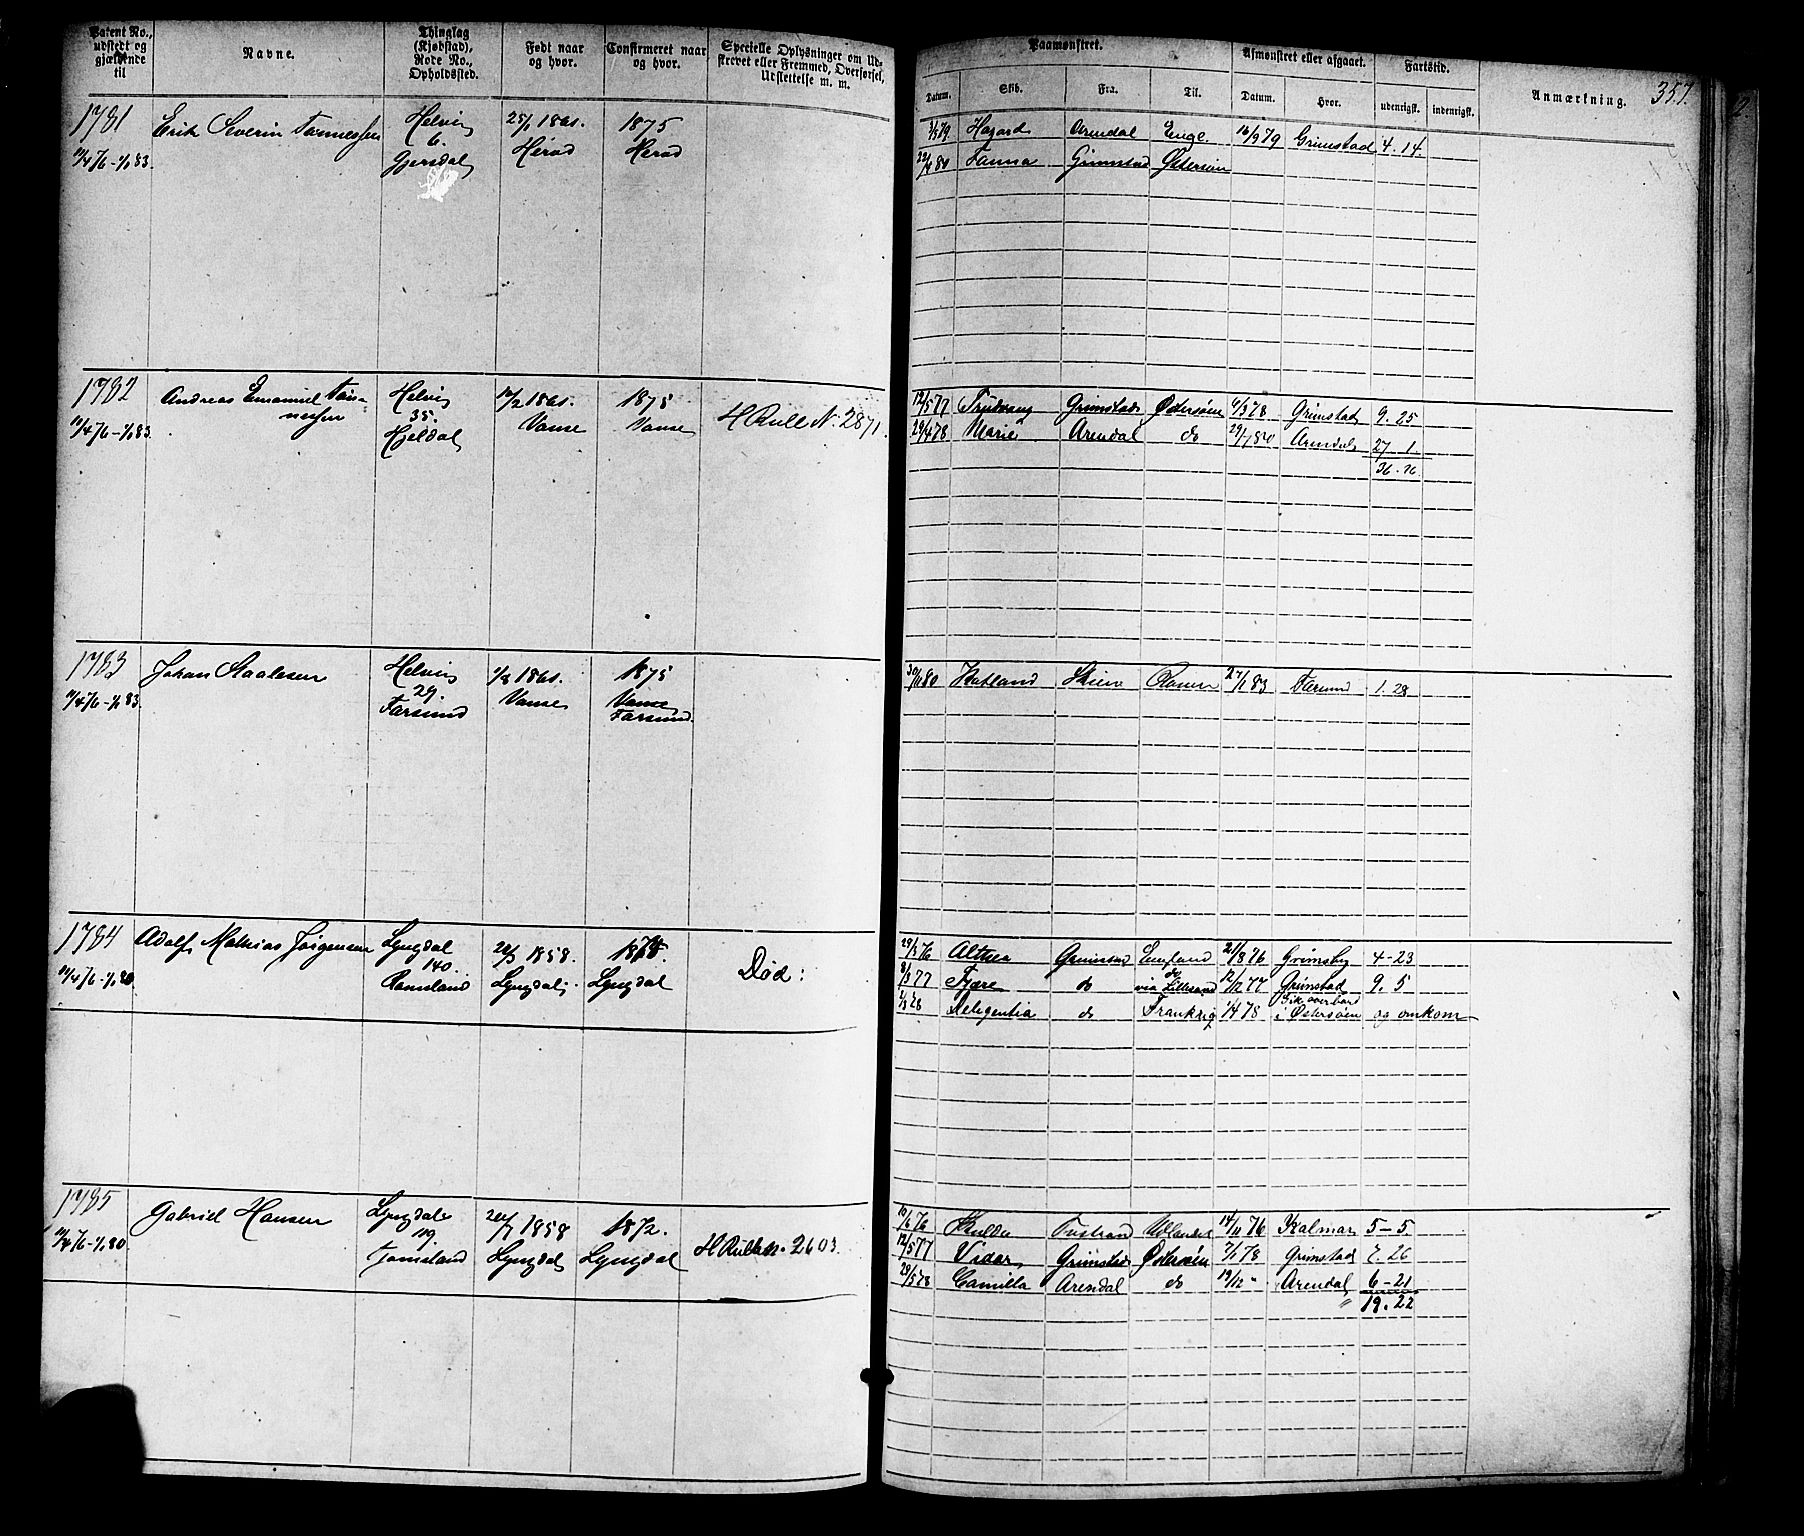 Patent No., udstedt og gjældende til
Navne.
Thinglag (Kjøbstad), Rode No., Opholdssted.
Født naar og hvor.
Confirmeret naar og hvor.
Specielle Oplysninger om Udskrevet eller Fremmed, Overførsel, Udslettelse m. m.
Paamønstret.
Afmønstret eller afgaaet.
Fartstid.
Anmærkning.
357
Datum. Skib. Fra. Til. Datum. Hvor. udenrigsk. indenrigsk.
1781
11/4 76-1/1 83.
Erik Severin Tønnessen
Helvig
6.
Gjersdal
25/1 1861.
Herad
1875
Herad
Hazard Arendal Engl. 16/9 79 Grimstad 4.14.
22/4 80 Fanna Grimstad Østersøen
1782
11/4 76-1/1 83.
Andreas Emanuel Tøn-
nessen
Helvig
35.
Hjeldal
12/2 1861.
Vanse
1875
Vanse
H Rull N. 2871.
12/5 77 Grimstad Østersøen 6/3 78 Grimstad 9.25
29/4 78 Marie Arendal do 29/7 80 Arendal 27 1.
36.26
1783
11/4 76-1/1 83
Johan Staalesen
Helvig
29.
Farsund
1/8 1861.
Vanse
1875
Vanse
Farsund
30/11 80 Hatland Skien Rouen 27/1 83 Farsund 1.28
1784
11/4 76-1/1 80
Adolf Mathias Jørgensen
Lyngdal
140.
Ramsland
1858.
Lyngdal
Lyngdal
Død:
29/3 76 Althea Grimstad England 21/8 76 Grimsby 4-23
8/3 77 Fjære do do via Lillesand 12/12 77 Grimstad 9.5
2/3 78 Deligentia do Frankrig 1/4 78 Gik overbord
i Østersøen og omkom
1785
11/4 76-1/1 80
Gabriel Hansen
Lyngdal
119
Tomsland
1858
Lyngdal
1872.
Lyngdal
H Rull N. 2603.
10/6 76 Hulda Tvestrand Udlandet 14/11 76 Kalmar 5-5.
12/5 77 Vidar Grimstad Østersøen 7/1 78 Grimstad 7.26
29/5 78 Camilla Arendal do 19/12 " Arendal 6-21
" 19.22